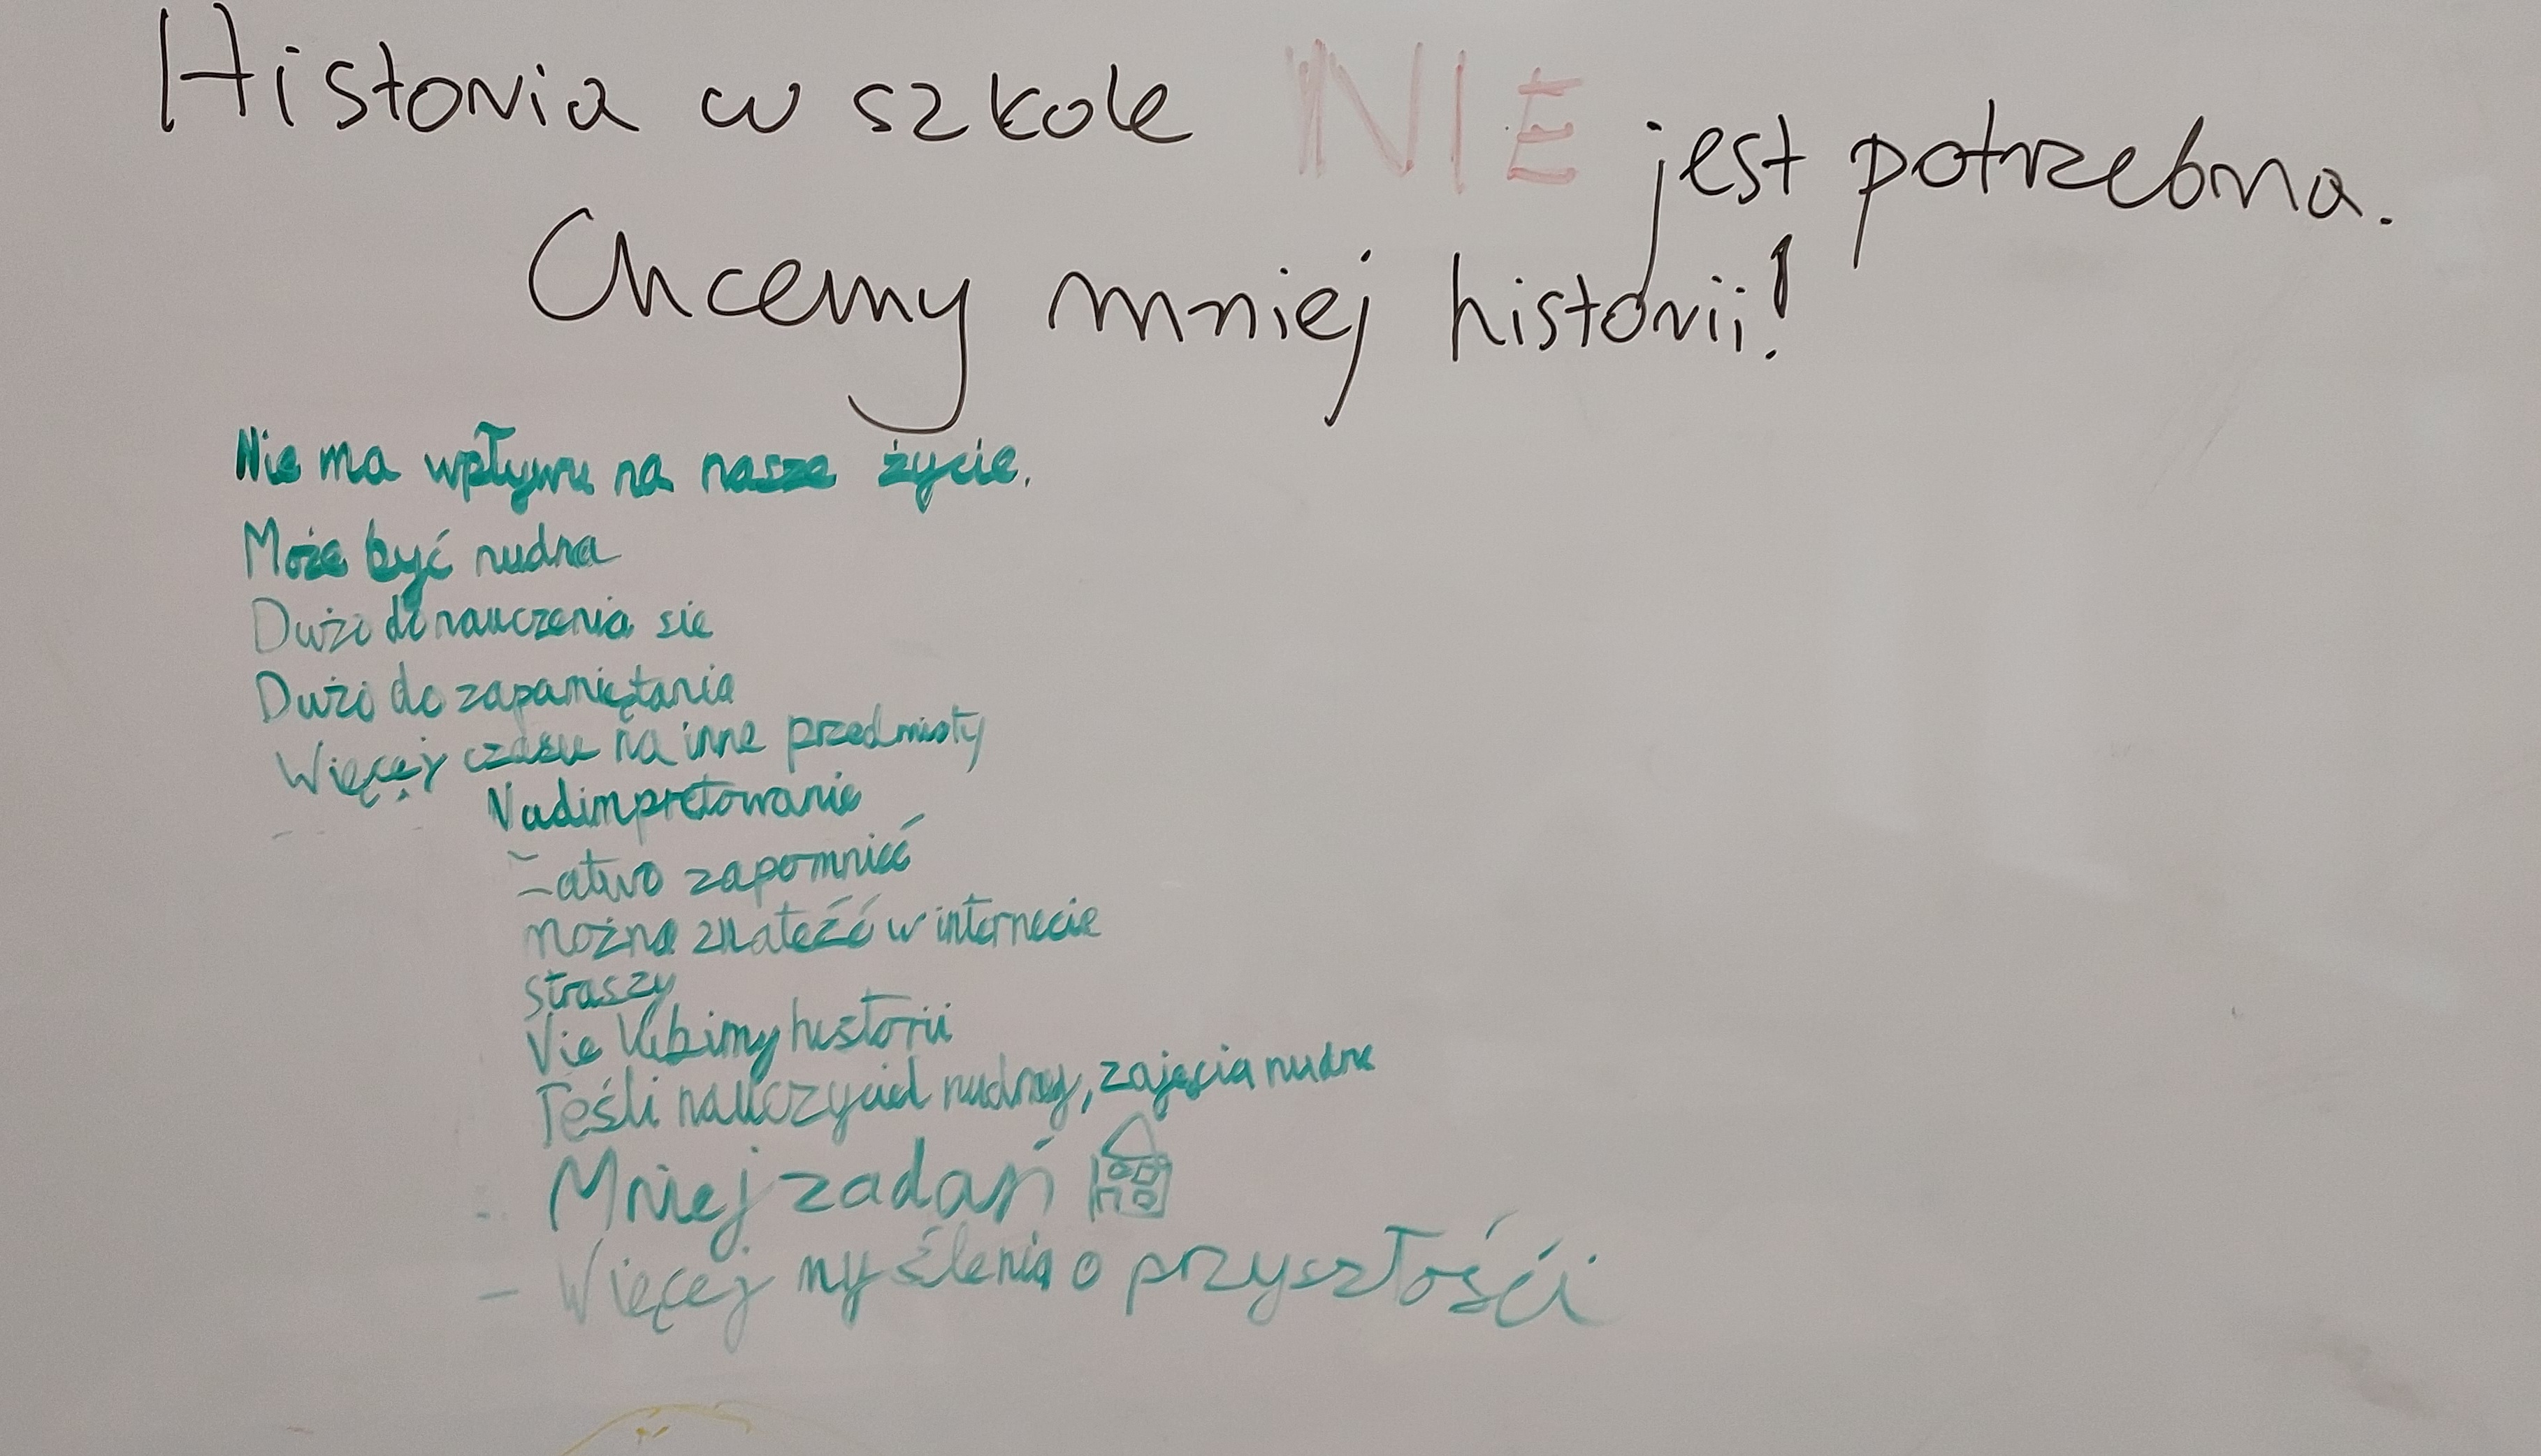 Historia w szkole NIE jest potrzebna.
Chcemy mniej historii!
Nie ma wpływu na nasze życie.
Może być nudna
Dużo do nauczenia się
Dużo do zapamiętania
Więcęj czasu na inne przedmioty
Nadimpretowanie
Łatwo zapomnieć
można znaleźć w internecie
straszy
Nie lubimy historii
Jeśli nauczyciel nudny, zajęcia nudne
Mniej zadań
- Więcej myślenia o przyszłośći